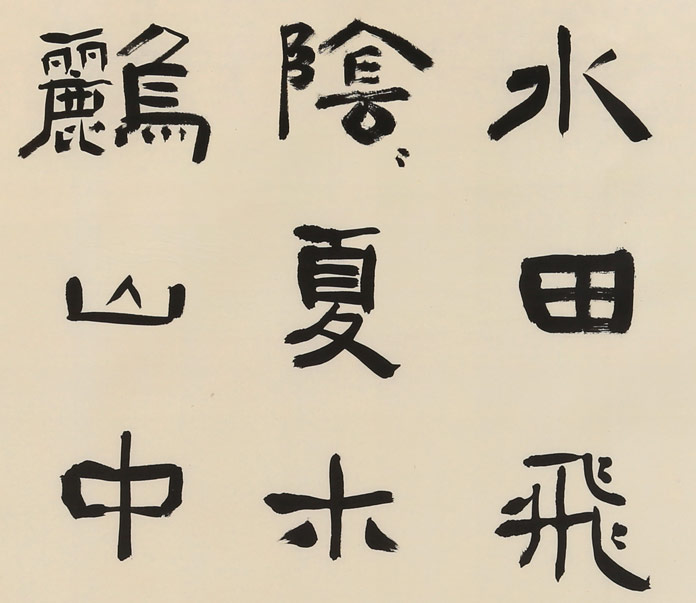 水田飛
陰〻夏木
鸝山中